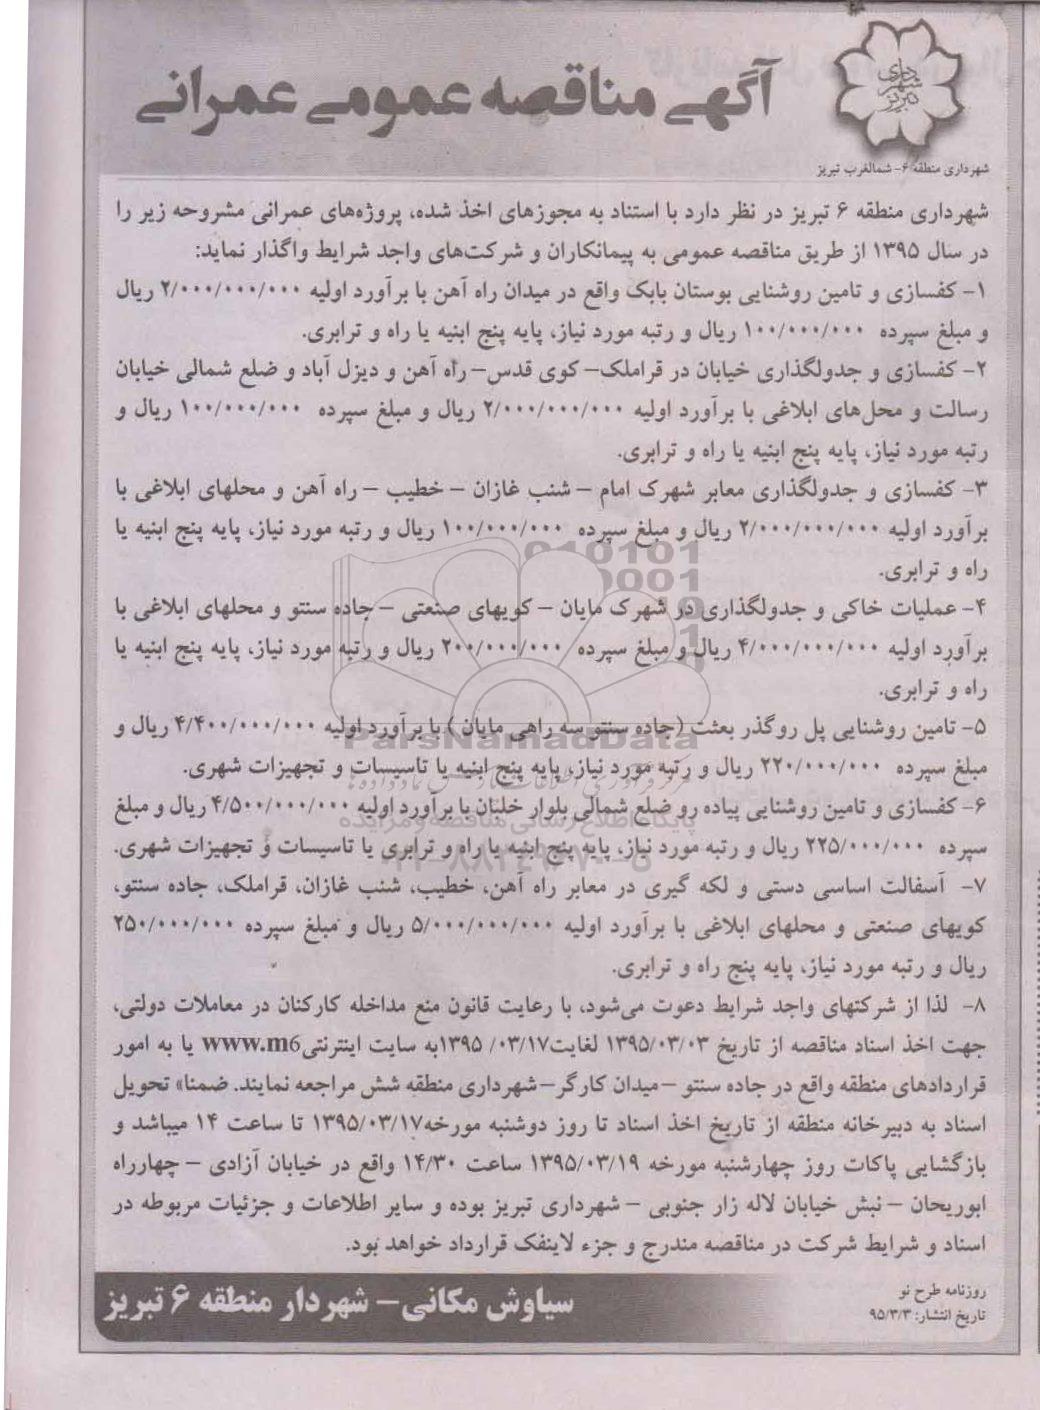 شهرداری تبریز
آگهی مناقصه عمومی عمرانی
شهرداری منطقه ۶- شمالغرب تبریز
شهرداری منطقه ۶ تبریز در نظر دارد با استناد به مجوزهای اخذ شده، پروژه‌های عمرانی مشروحه زیر را
در سال ۱۳۹۵ از طریق مناقصه عمومی به پیمانکاران و شرکت‌های واجد شرایط واگذار نماید:
۱- کفسازی و تامین روشنایی بوستان بابک واقع در میدان راه آهن با برآورد اولیه ۲/۰۰۰/۰۰۰/۰۰۰ ریال
و مبلغ سپرده ۱۰۰/۰۰۰/۰۰۰ ریال و رتبه مورد نیاز، پایه پنج ابنیه یا راه و ترابری.
۲- کفسازی و جدولگذاری خیابان در قراملک- کوی قدس- راه آهن و دیزل آباد و ضلع شمالی خیابان
رسالت و محل‌های ابلاغی با برآورد اولیه ۲/۰۰۰/۰۰۰/۰۰۰ ریال و مبلغ سپرده ۱۰۰/۰۰۰/۰۰۰ ریال و
رتبه مورد نیاز، پایه پنج ابنیه یا راه و ترابری.
۳- کفسازی و جدولگذاری معابر شهرک امام - شنب غازان - خطیب - راه آهن و محلهای ابلاغی با
برآورد اولیه ۲/۰۰۰/۰۰۰/۰۰۰ ریال و مبلغ سپرده ۱۰۰/۰۰۰/۰۰۰ ریال و رتبه مورد نیاز، پایه پنج ابنیه یا
راه و ترابری.
۴- عملیات خاکی و جدولگذاری در شهرک مایان - کویهای صنعتی - جاده سنتو و محلهای ابلاغی با
برآورد اولیه ۴/۰۰۰/۰۰۰/۰۰۰ ریال و مبلغ سپرده ۲۰۰/۰۰۰/۰۰۰ ریال و رتبه مورد نیاز، پایه پنج ابنیه یا
راه و ترابری.
۵- تامین روشنایی پل روگذر بعثت (جاده سنتو سه راهی مایان) با برآورد اولیه ۴/۴۰۰/۰۰۰/۰۰۰ ریال و
مبلغ سپرده ۲۲۰/۰۰۰/۰۰۰ ریال و رتبه مورد نیاز، پایه پنج ابنیه یا تاسیسات و تجهیزات شهری.
۶- کفسازی و تامین روشنایی پیاده رو ضلع شمالی بلوار خلبان با برآورد اولیه ۴/۵۰۰/۰۰۰/۰۰۰ ریال و مبلغ
سپرده ۲۲۵/۰۰۰/۰۰۰ ریال و رتبه مورد نیاز، پایه پنج ابنیه یا راه و ترابری یا تاسیسات و تجهیزات شهری.
۷- آسفالت اساسی دستی و لکه گیری در معابر راه آهن، خطیب، شنب غازان، قراملک، جاده سنتو،
کویهای صنعتی و محلهای ابلاغی با برآورد اولیه ۵/۰۰۰/۰۰۰/۰۰۰ ریال و مبلغ سپرده ۲۵۰/۰۰۰/۰۰۰
ریال و رتبه مورد نیاز، پایه پنج راه و ترابری.
۸- لذا از شرکتهای واجد شرایط دعوت می‌شود، با رعایت قانون منع مداخله کارکنان در معاملات دولتی،
جهت اخذ اسناد مناقصه از تاریخ ۱۳۹۵/۰۳/۰۳ لغایت ۱۳۹۵/۰۳/۱۷ به سایت اینترنتی www.m6 یا به امور
قراردادهای منطقه واقع در جاده سنتو - میدان کارگر - شهرداری منطقه شش مراجعه نمایند. ضمنا» تحویل
اسناد به دبیرخانه منطقه از تاریخ اخذ اسناد تا روز دوشنبه مورخه ۱۳۹۵/۰۳/۱۷ تا ساعت ۱۴ میباشد و
بازگشایی پاکات روز چهارشنبه مورخه ۱۳۹۵/۰۳/۱۹ ساعت ۱۴/۳۰ واقع در خیابان آزادی - چهارراه
ابوریحان - نبش خیابان لاله زار جنوبی - شهرداری تبریز بوده و سایر اطلاعات و جزئیات مربوطه در
اسناد و شرایط شرکت در مناقصه مندرج و جزء لاینفک قرارداد خواهد بود.
روزنامه طرح نو
تاریخ انتشار: ۹۵/۳/۳
سیاوش مکانی - شهردار منطقه ۶ تبریز
ParsNamadData
پایگاه اطلاع رسانی مناقصه و مزایده